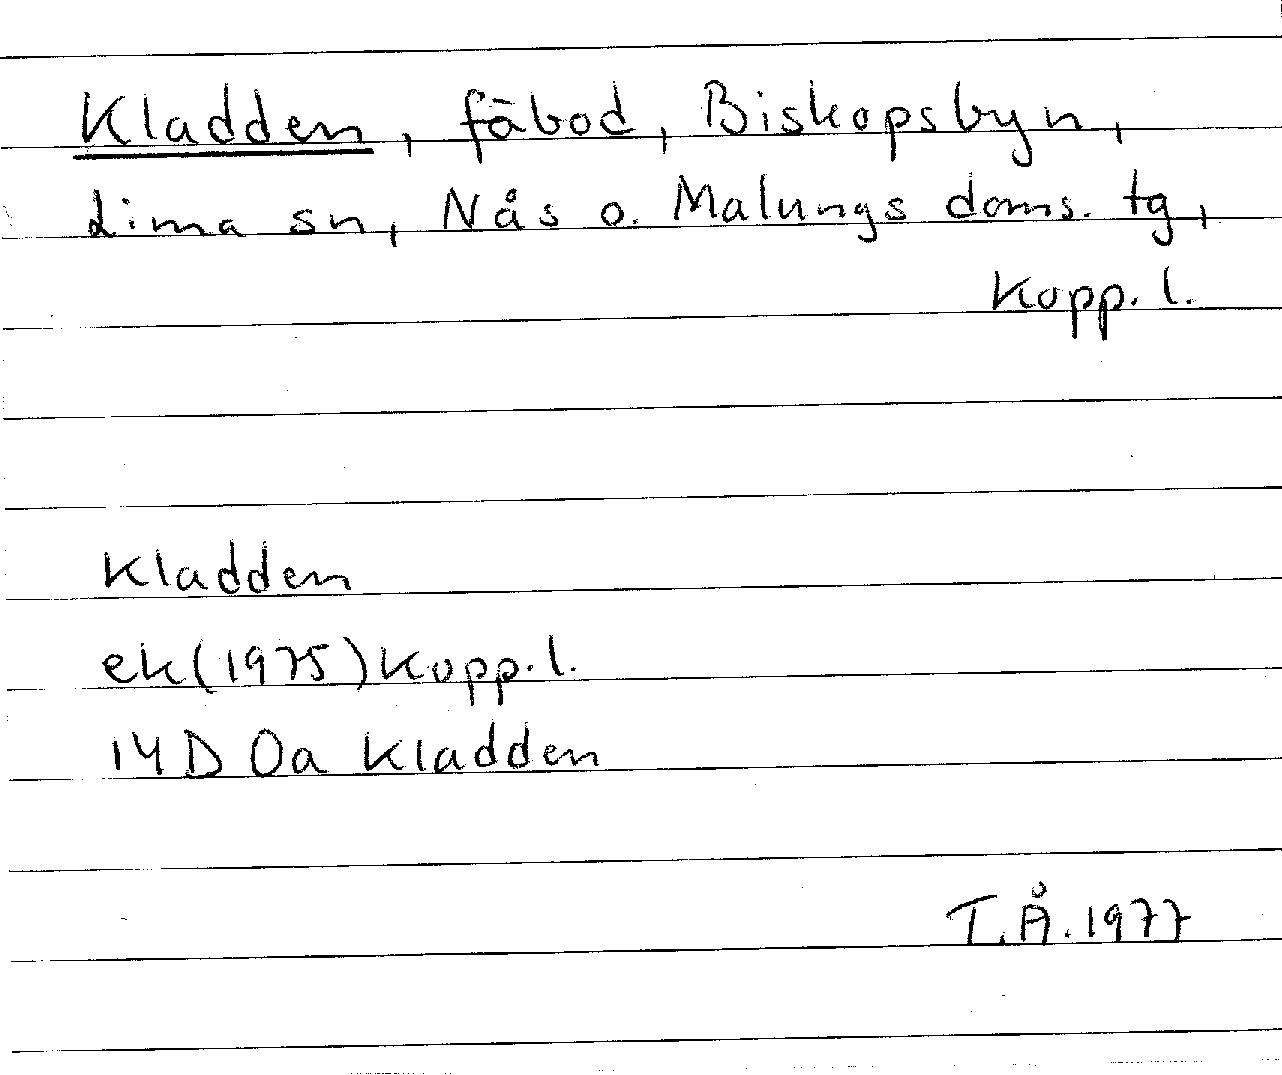 Kladden, fäbod, Biskopsbyn,
Lima sn, Nås o. Malungs doms. tg,
Kopp. l.
Kladden
ek(1975)Kopp.l.
14D 0a Kladden
T.Å.1977